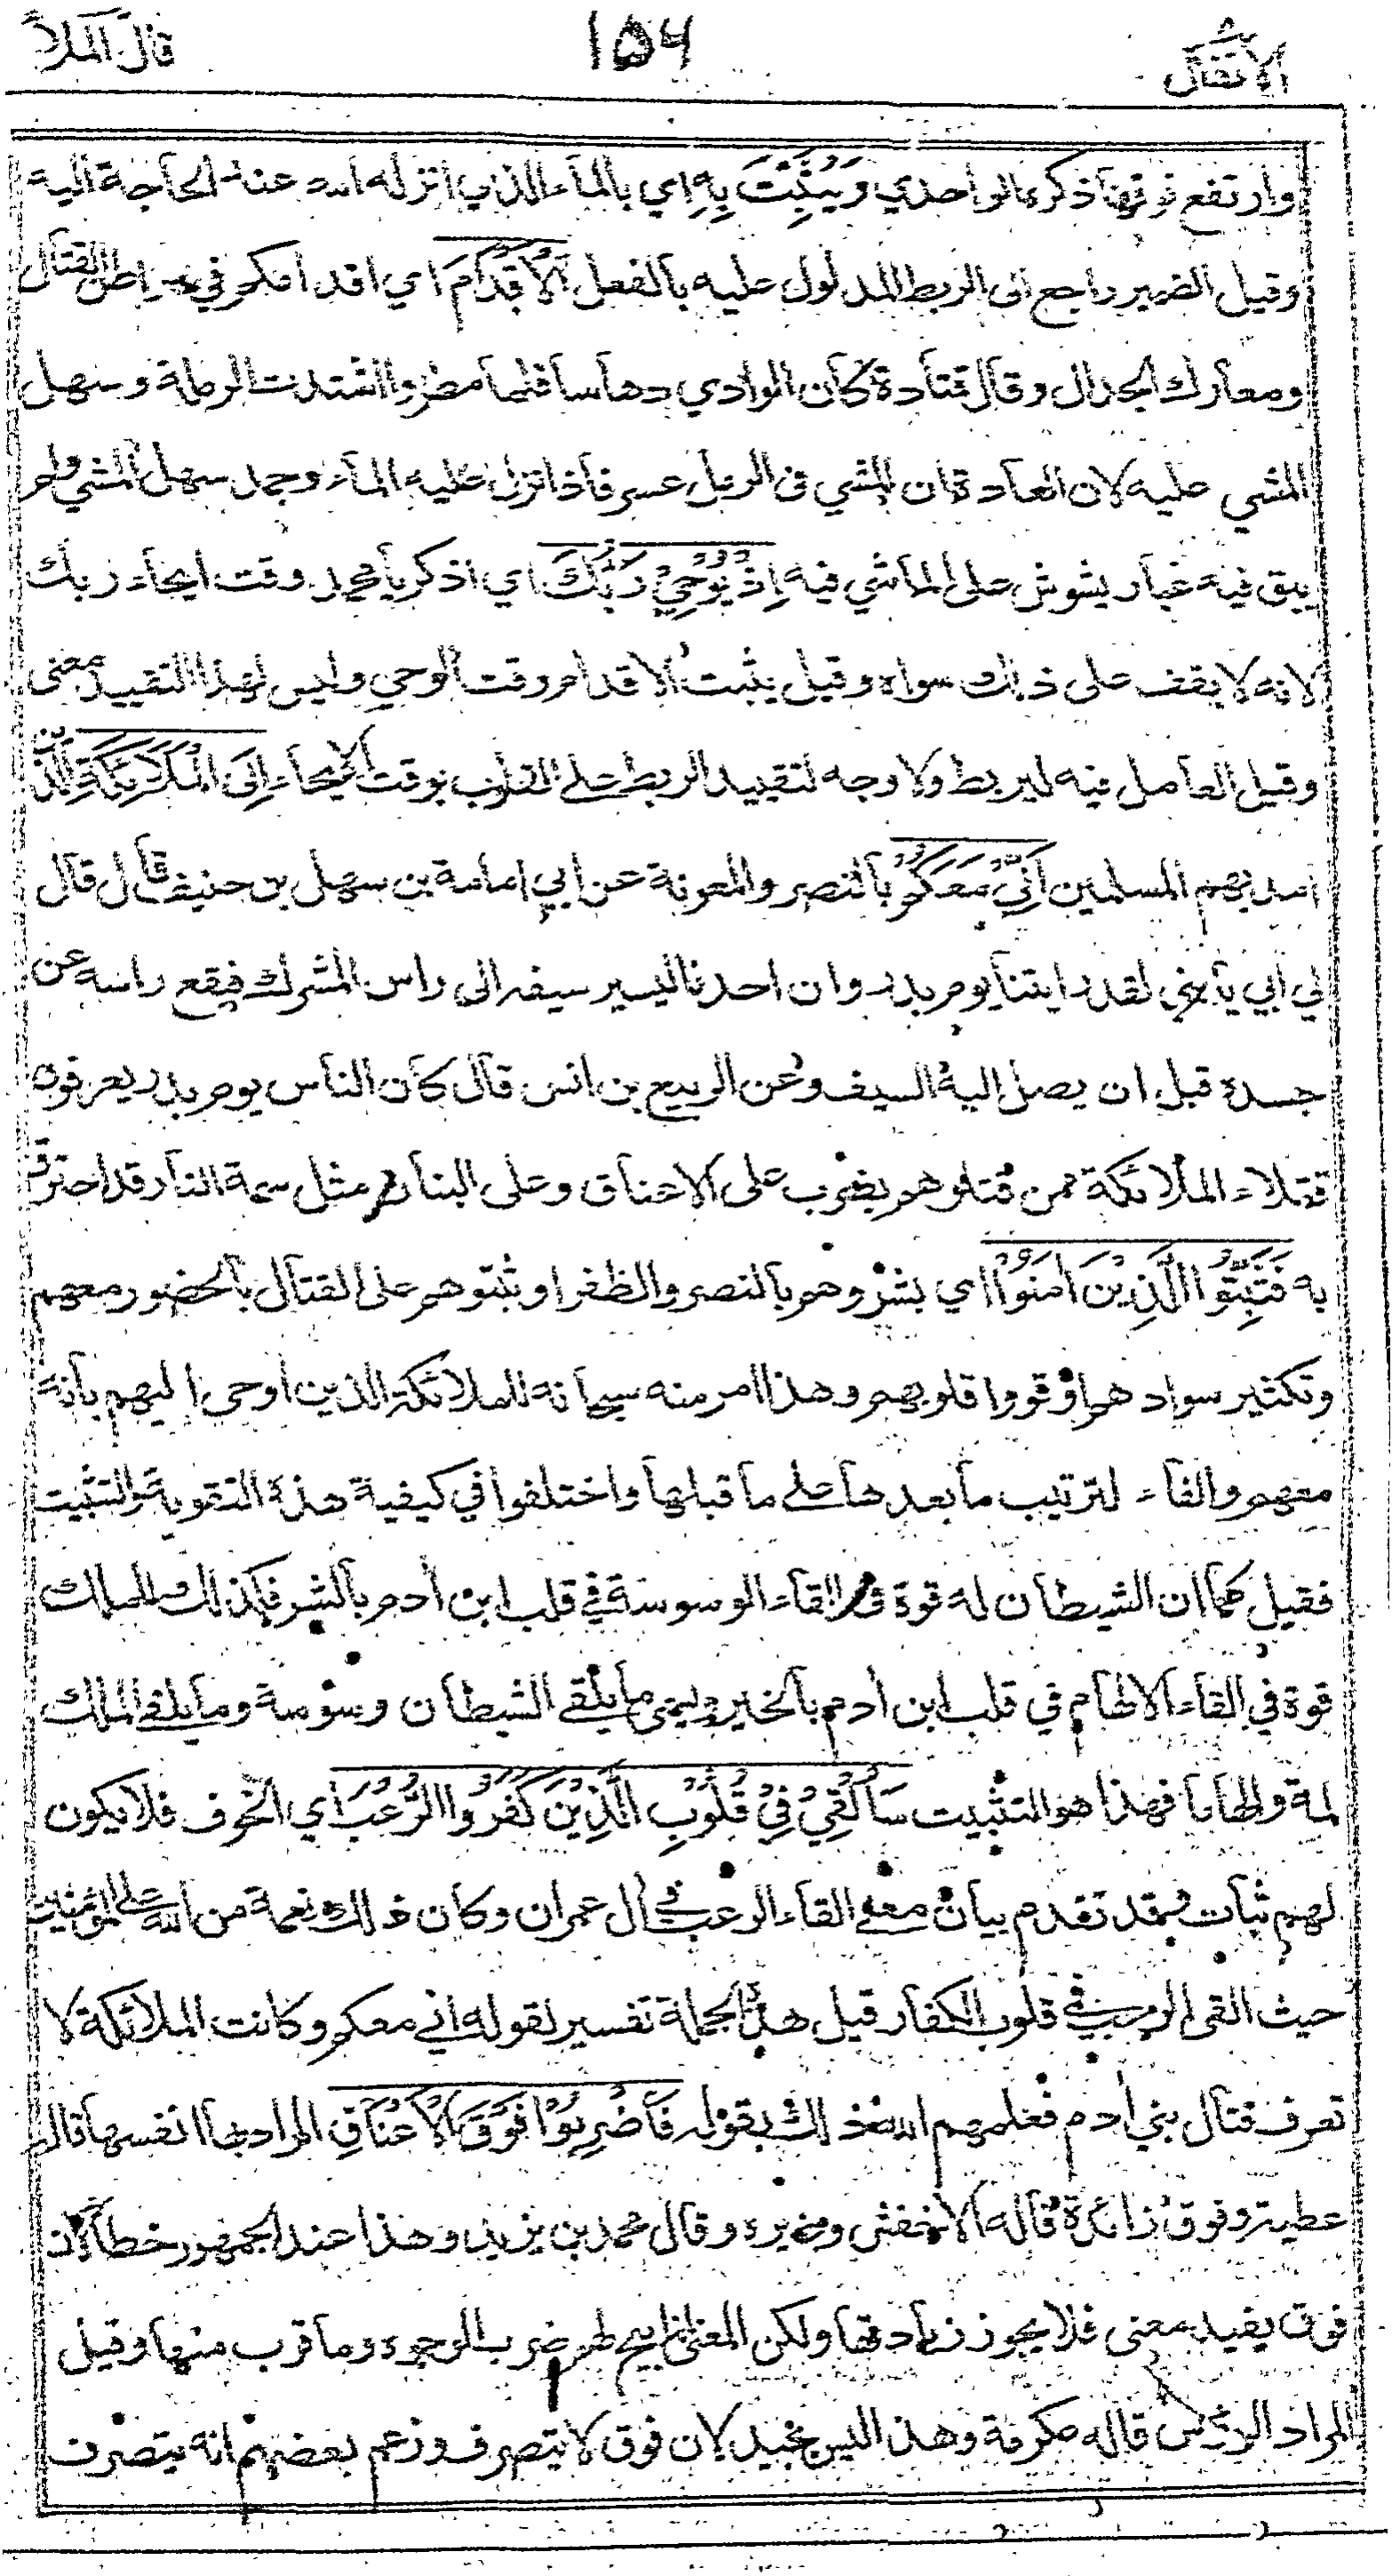 الانفال ١٥٦ قال الملأ
وارتفع فوقها ذكره الواحدي وَيُثَبِّتَ بِهِ اي بالماء الذي انزله الله عند الحاجة اليه
وقيل الضمير راجع الى الربط المدلول عليه بالفعل الْأَقْدَامَ اي اقدامكم في مواطن القتال
ومعارك الجدال وقال قتادة كان الوادي دهاسا فلما مطروا اشتدت الرملة وسهل
المشي عليه لان العادة ان المشي في الرمل عسر فاذا نزل عليه الماء وجمد سهل المشي ولم
يبق فيه غبار يشوش على الماشي فيه اِذْ يُوْحِيْ رَبُّكَ اي اذكر يا محمد وقت ايحاء ربك
لانه لا يقف على ذلك سواه وقيل يثبت الاقدام وقت الوحي وليس لهذا التقييد معنى
وقيل العامل فيه ليربط ولا وجه لتقييد الربط على القلوب بوقت الايحاء اِلَى الْمَلَائِكَةِ الذين
امد بهم المسلمين اَنِّيْ مَعَكُمْ بالنصر والمعونة عن ابي امامة بن سهل بن حنيف قال قال
لي ابي يا بني لقد رايتنا يوم بدر وان احدنا ليسير سيفه الى راس المشرك فيقع راسه عن
جسده قبل ان يصل اليه السيف وعن الربيع بن انس قال كان الناس يوم بدر يعرفون
قتلاء الملائكة ممن قتلوهم بضرب على الاعناق وعلى البنان مثل سمة النار قد احترق
به فَثَبِّتُوا الَّذِيْنَ اٰمَنُوْا اي بشروهم بالنصر والظفر او ثبتوهم على القتال بالحضور معهم
وتكثير سوادهم او قووا قلوبهم وهذا امر منه سبحانه للملائكة الذين اوحى اليهم بانه
معهم والفاء لترتيب ما بعدها على ما قبلها واختلفوا في كيفية هذه التقوية والتثبيت
فقيل كما ان الشيطان له قوة في القاء الوسوسة في قلب ابن أدم بالشر فكذلك للملك
قوة في القاء الالهام في قلب ابن أدم بالخير ويسمى ما يلقي الشيطان وسوسة وما يلقي الملك
لمة والهاما فهذا هو التثبيت سَاُلْقِيْ فِيْ قُلُوْبِ الَّذِيْنَ كَفَرُوا الرُّعْبَ اي الخوف فلا يكون
لهم ثبات وقد تقدم بيان معنى القاء الرعب في أل عمران وكان ذلك نعمة من الله على المؤمنين
حيث القى الرعب في قلوب الكفار قيل هذه الجملة تفسير لقوله اني معكم وكانت الملائكة لا
تعرف قتال بني أدم فعلمهم الله ذلك بقوله فَاضْرِبُوْا فَوْقَ الْاَعْنَاقِ المراد بها انفسها قاله
عطية وفوق زائدة قاله الاخفش وغيره وقال محمد بن يزيد وهذا عند الجمهور خطأ لان
فوق يفيد معنى فلا يجوز زيادتها ولكن المعنى ابيح لهم ضرب الوجوه وما قرب منها وقيل
المراد الرؤس قاله عكرمة وهذا ليس بجيد لان فوق لا يتصرف وزعم بعضهم انه يتصرف